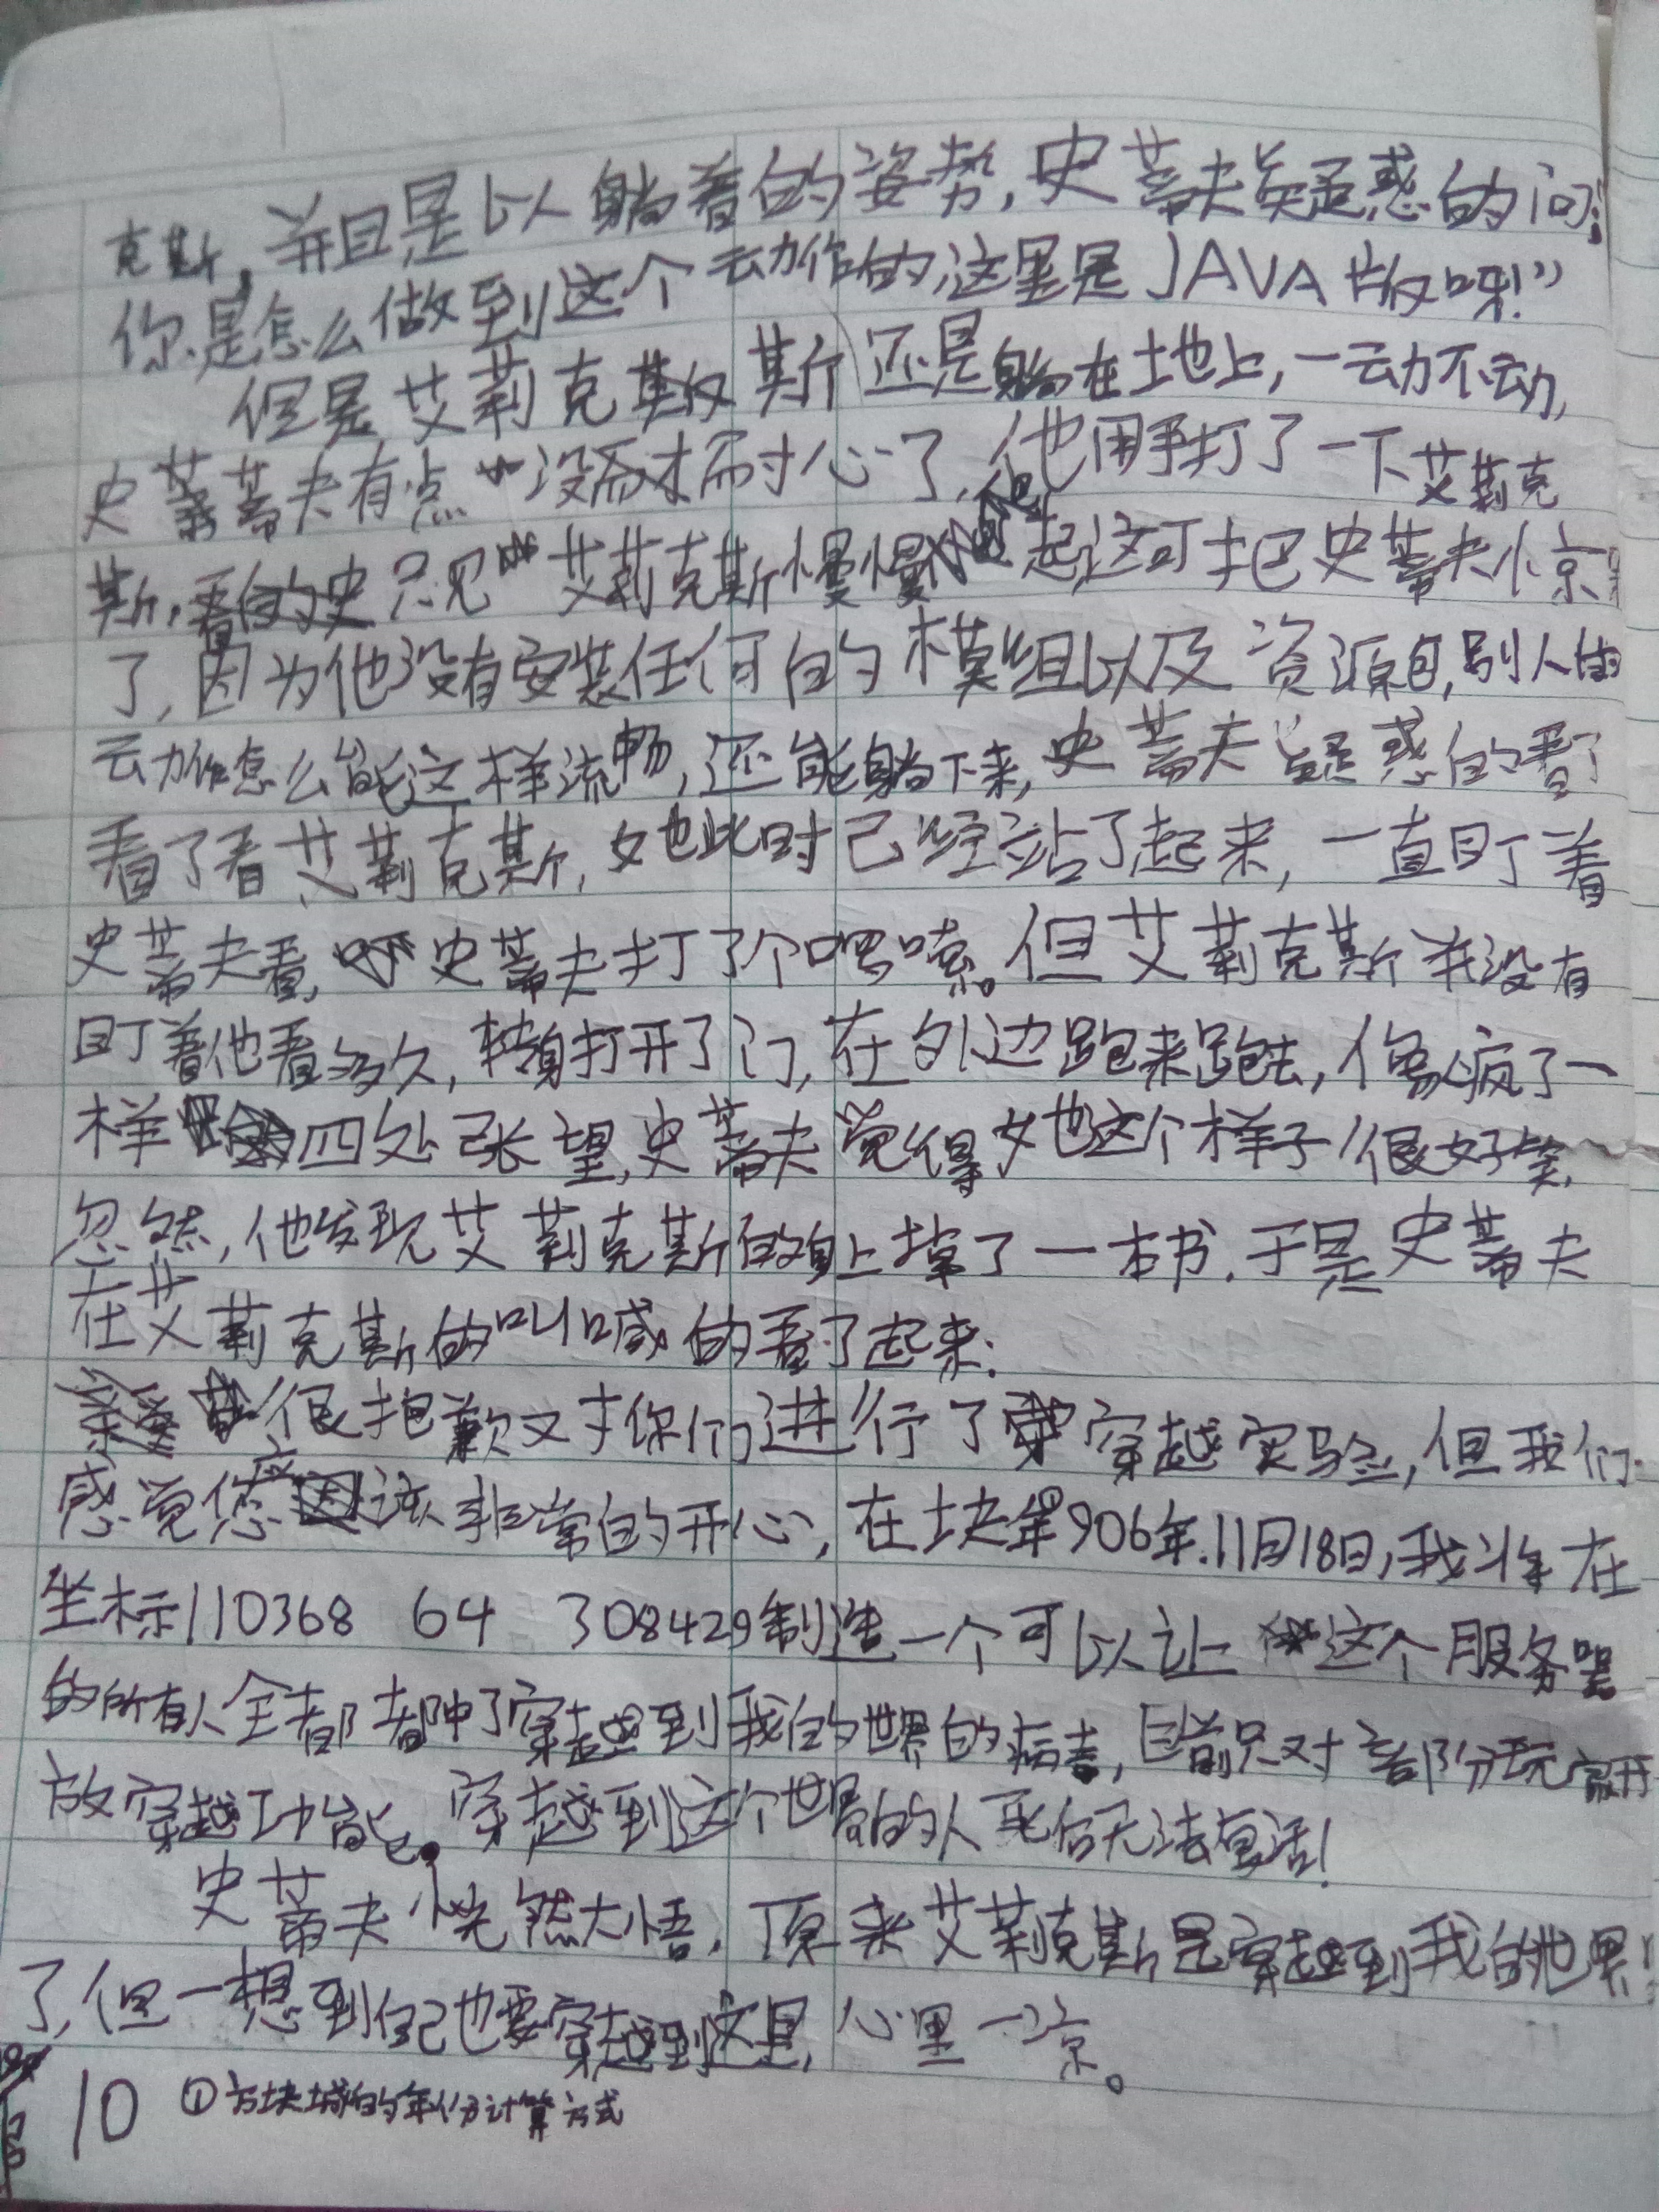 克斯，并且是以躺着的姿势，史蒂夫疑惑的问：
你是怎么做到这个动作的，这里是JAVA版呀！”
但是艾莉克斯还是躺在地上，一动不动，
史蒂夫有点没耐心了，他用手打了一下艾莉克
斯，只见艾莉克斯慢慢起这可把史蒂夫惊
了，因为他没有安装任何的模组以及资源包，别人的
动作怎么能这样流畅，还能躺下来，史蒂夫疑惑的看了
看了看艾莉克斯，她此时已经站了起来，一直盯着
史蒂夫看，史蒂夫打了个喷嚏。但艾莉克斯并没有
盯着他看多久，转身打开了门，在外边跑来跑去，像疯了一
样四处张望，史蒂夫觉得她这个样子很好笑，
忽然，他发现艾莉克斯的身上掉了一本书，于是史蒂夫
在艾莉克斯的叫喊的看了起来：
很抱歉对你们进行了穿越实验，但我们
感觉您应该非常的开心，在块年①906年.11月18日，我将在
坐标110368 64 308429制造一个可以让这个服务器
的所有人全都都中了穿越到我的世界的病毒，目前只对部分玩家开
放穿越功能。穿越到这个世界的人死后无法复活！
史蒂夫恍然大悟，原来艾莉克斯是穿越到我的世界
了，但一想到自己也要穿越到这里，心里一凉。
10 ①方块城的年份计算方式